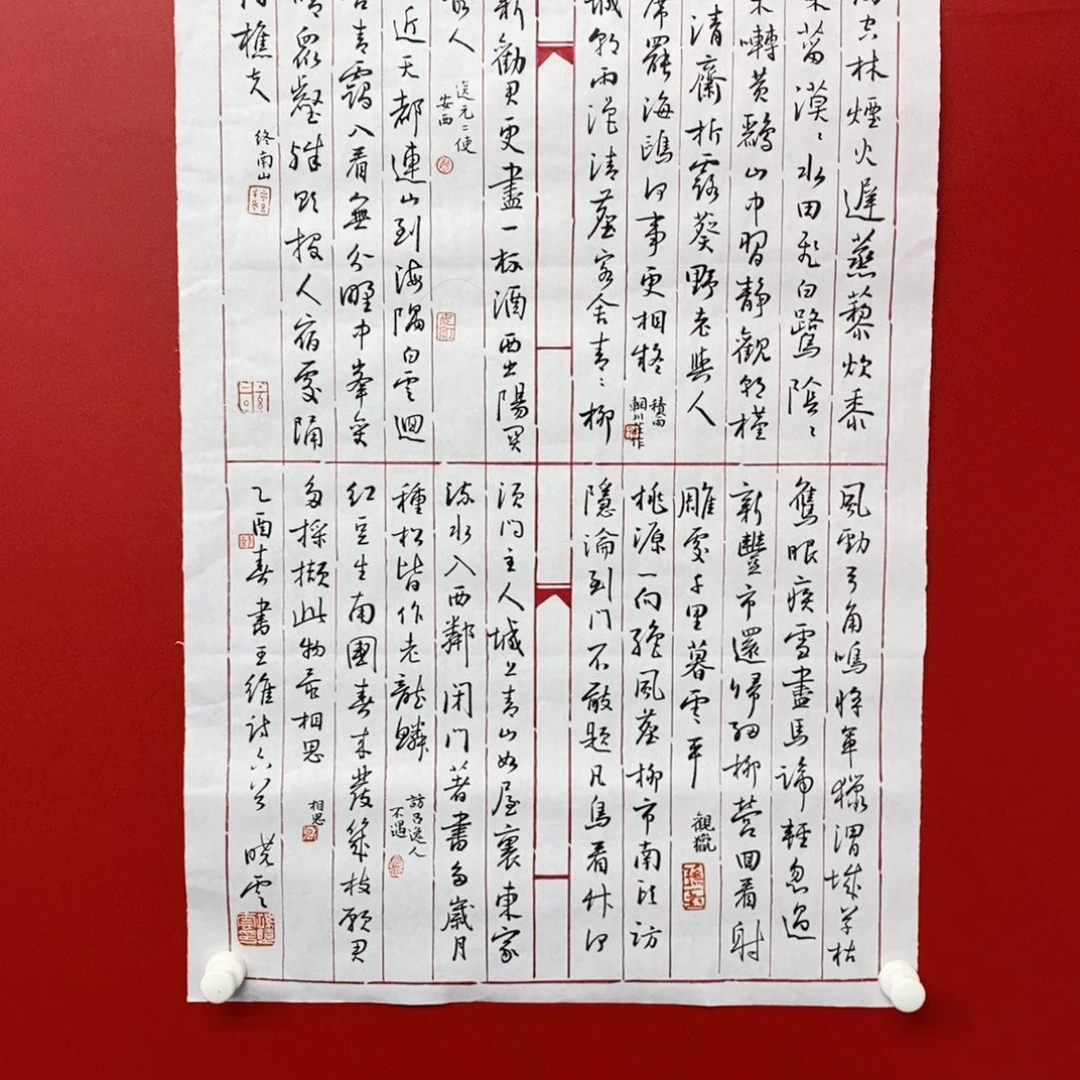 空林煙火遲蒸藜炊黍
菑漠〻水田飛白鷺陰〻
囀黃鸝山中習靜觀朝槿
清齋折露葵野老與人
席罷海鷗何事更相疑
積雨
輞川庄作
城朝雨浥清塵客舍青〻柳
新勸君更盡一杯酒西出陽関
人
送元二使
安西
近天都連山到海隅白雲迴
合青靄入看無分野中峯變
晴眾壑殊欲投人宿處隔
樵夫
終南山
風勁弓角鳴將軍獵渭城草枯
鷹眼疾雪盡馬蹄輕忽過
新豐市還歸細柳營回看射
雕處千里暮雲平
觀獵
桃源一向絕風塵柳市南頭訪
隱淪到門不敢題凡鳥看竹何
須問主人城上青山如屋裏東家
流水入西鄰閉門著書多歲月
種松皆作老龍鱗
訪呂逸人
不遇
紅豆生南國春來發幾枝願君
多採擷此物最相思
相思
乙酉春書王維詩六首 曉雲